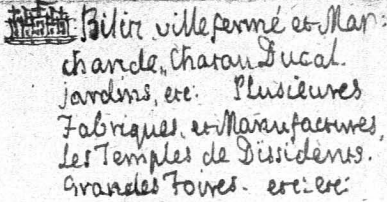 Bilin ville fermé et Mar-
chande, Chatau Ducal.
jardins, etc: Plusieures
Fabriques, et Manufactures,
les Temples de Dissidents.
Grandes Foires. etc: etc: